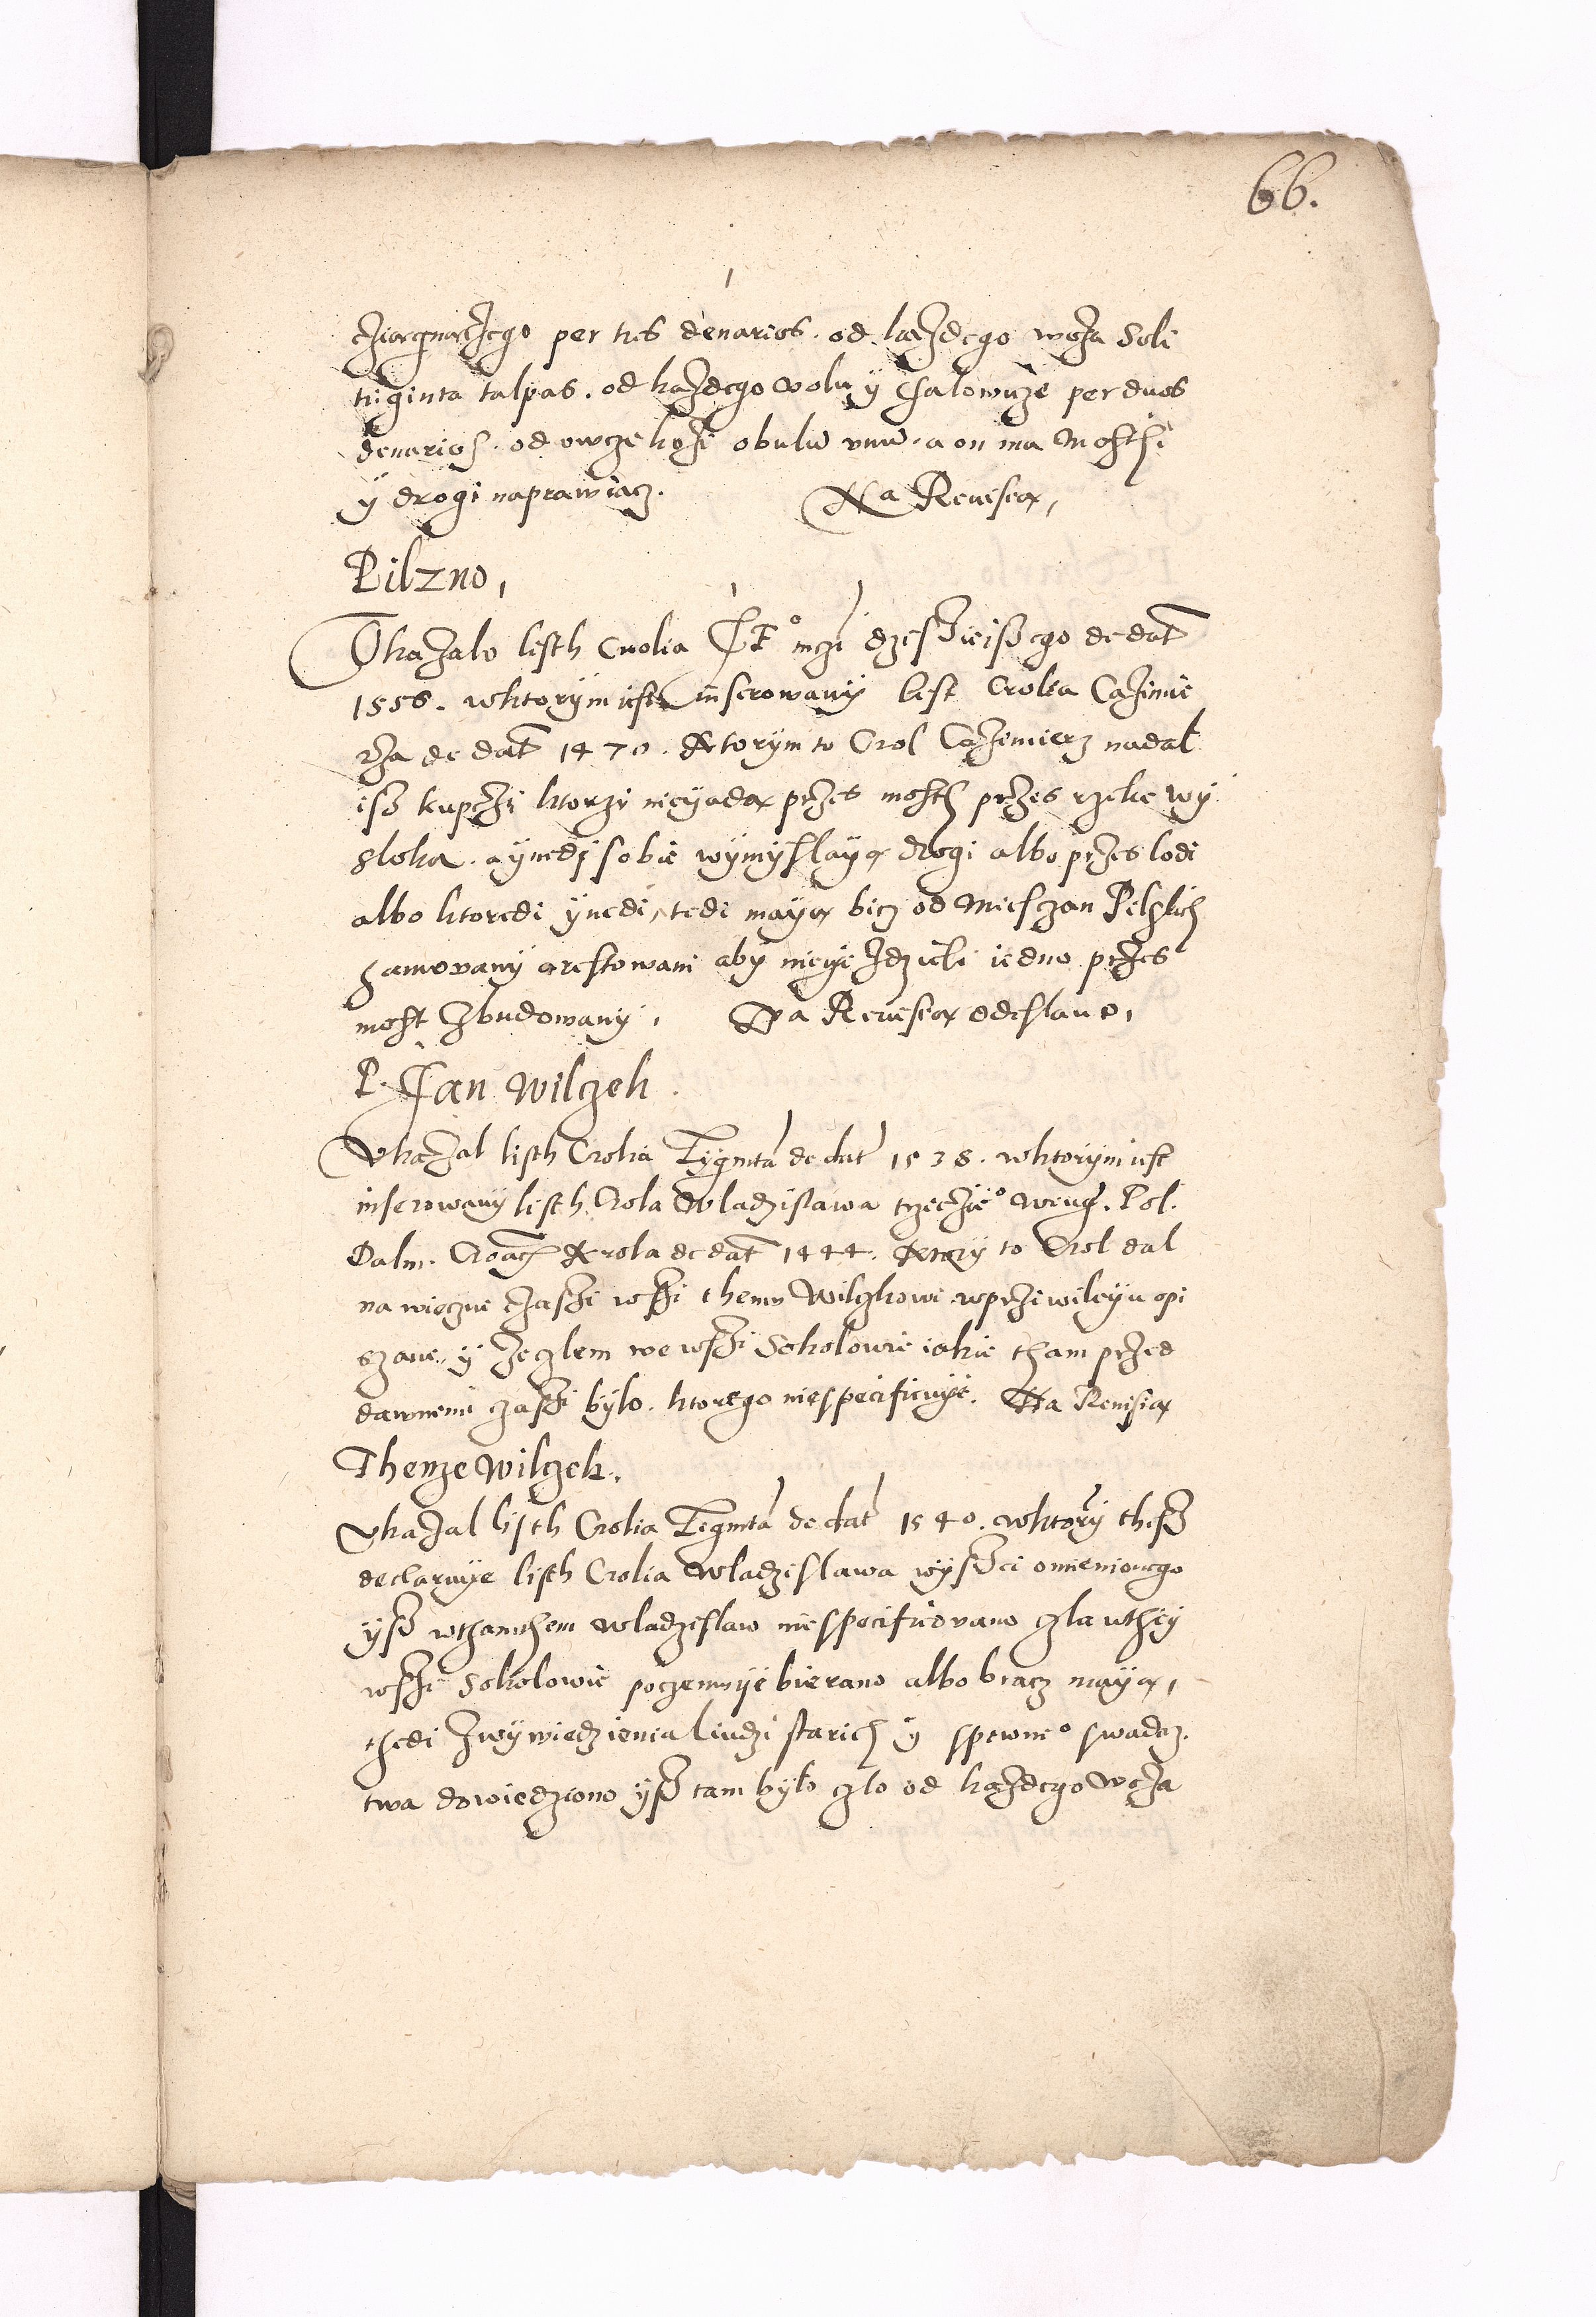 66.
cziągnączego per tres denarios. od każdego woza Soli
triginta talpas. od kazdego wolu y Jalowize per duos
denarios. od owcze kozi obulu unu. a on ma Mosthi
y drogi naprawiacz. Na Reuisią,
Pilzno,
Ukazalo listh Crolia J K° mczi dzesieiszego de dat
1556. wktorym iest inserowany list Crolia Cazimie
rza de dat 1470. Ktorym to Crol Cazimierz nadal
isz kupczi ktorzi nieyadą przes mosth przes rzeke wy
sloka. a ynedj sobie wymyslayą drogi albo przes lodi
albo ktoredi ynedi, tedi mayą bicz od Miesczan Pilzkich
hamovany arestowani aby nieyezdzieli iedno przes
most zbudowany, Na Reuisią odeslano,
P. Jan Wilczek.
Ukazal listh Crolia Zygmta de dat 1538. wktorym iest
inserowany listh Crola Wladzislawa trzeczie° Weng. Pol.
Dalm. Croac Krola de dat 1444. Ktory to Crol dal
na wieczne czassi wssi themu Wilczkowi wprziwileyu opi
szane, y ze czlem we wssi Sokolowie iakie tham przed
dawnemi czassi bylo. ktorego niespecificuye. Na Reuisią
Thenze Wilczek.
Ukazal listh Crolia Zigmta de dat 1540. wktory thesz
declaruye listh Crolia Wladzislawa wyssei omienionego
ysz wthamthem Wladzislaw niespecificovano czla wthey
wssi Sokolowie poczemuye bierano albo bracz mayą,
thedi zwywiedzienia liudzi starich y spewne° swadecz.
twa dowiedziono ysz tam bylo czlo od kazdego woza